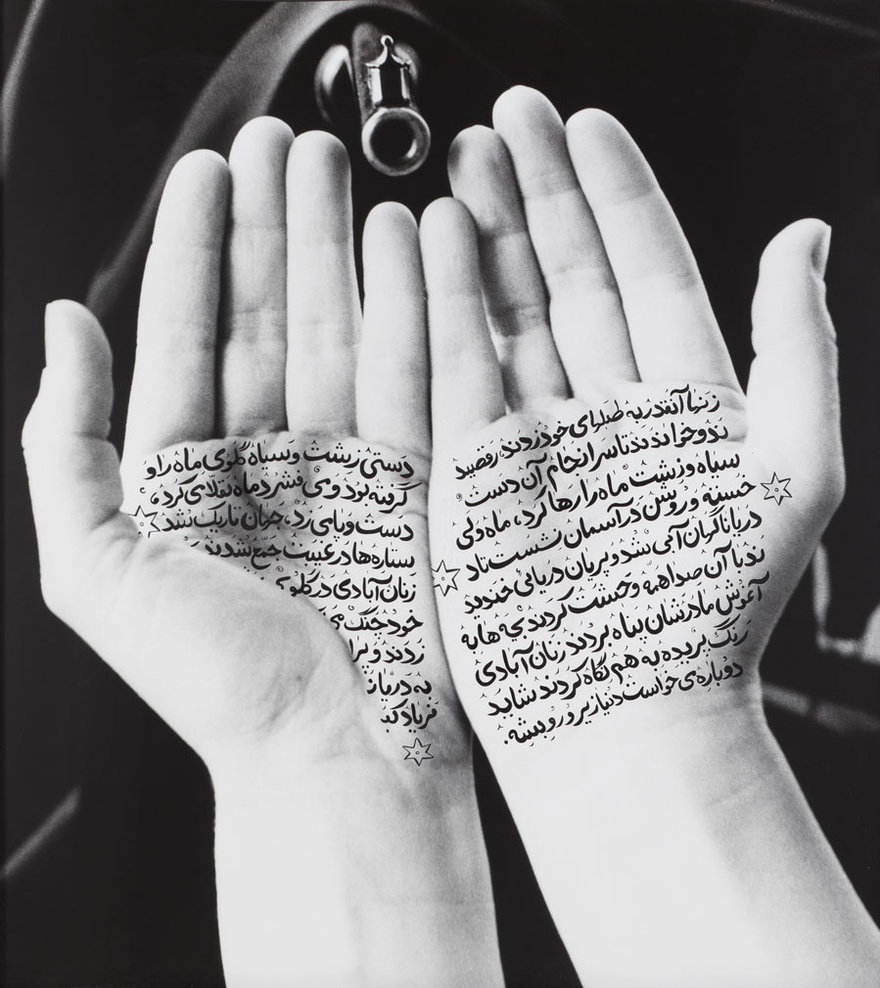 دستی زشت و سیاه گلوی ماه را و
گرفته بود و می فشرد ماه تقلا می کرد،
دست و پا می زد، جهان تاریک شد
ستاره ها در غیبت جمع شدند
زنان آبادی در گلو
خود جنگ می
زدند و
به دریا
فریاد
زنها آنقدر به طبلهای خود زدند، رقصید
ند و خواندند تا سرانجام آن دست
سیاه و زشت ماه را رها کرد، ماه ولی
خسته و روشن در آسمان نشست
دریا ناگهان آبی شد و پریان دریایی خندید
ند با آن صدا همه وحشت کردند بچه ها به
آغوش مادرشان پناه بردند زنان آبادی
رنگ پریده به هم نگاه کردند شاید
دوباره می خواست دنیا زیر و رو بشه.